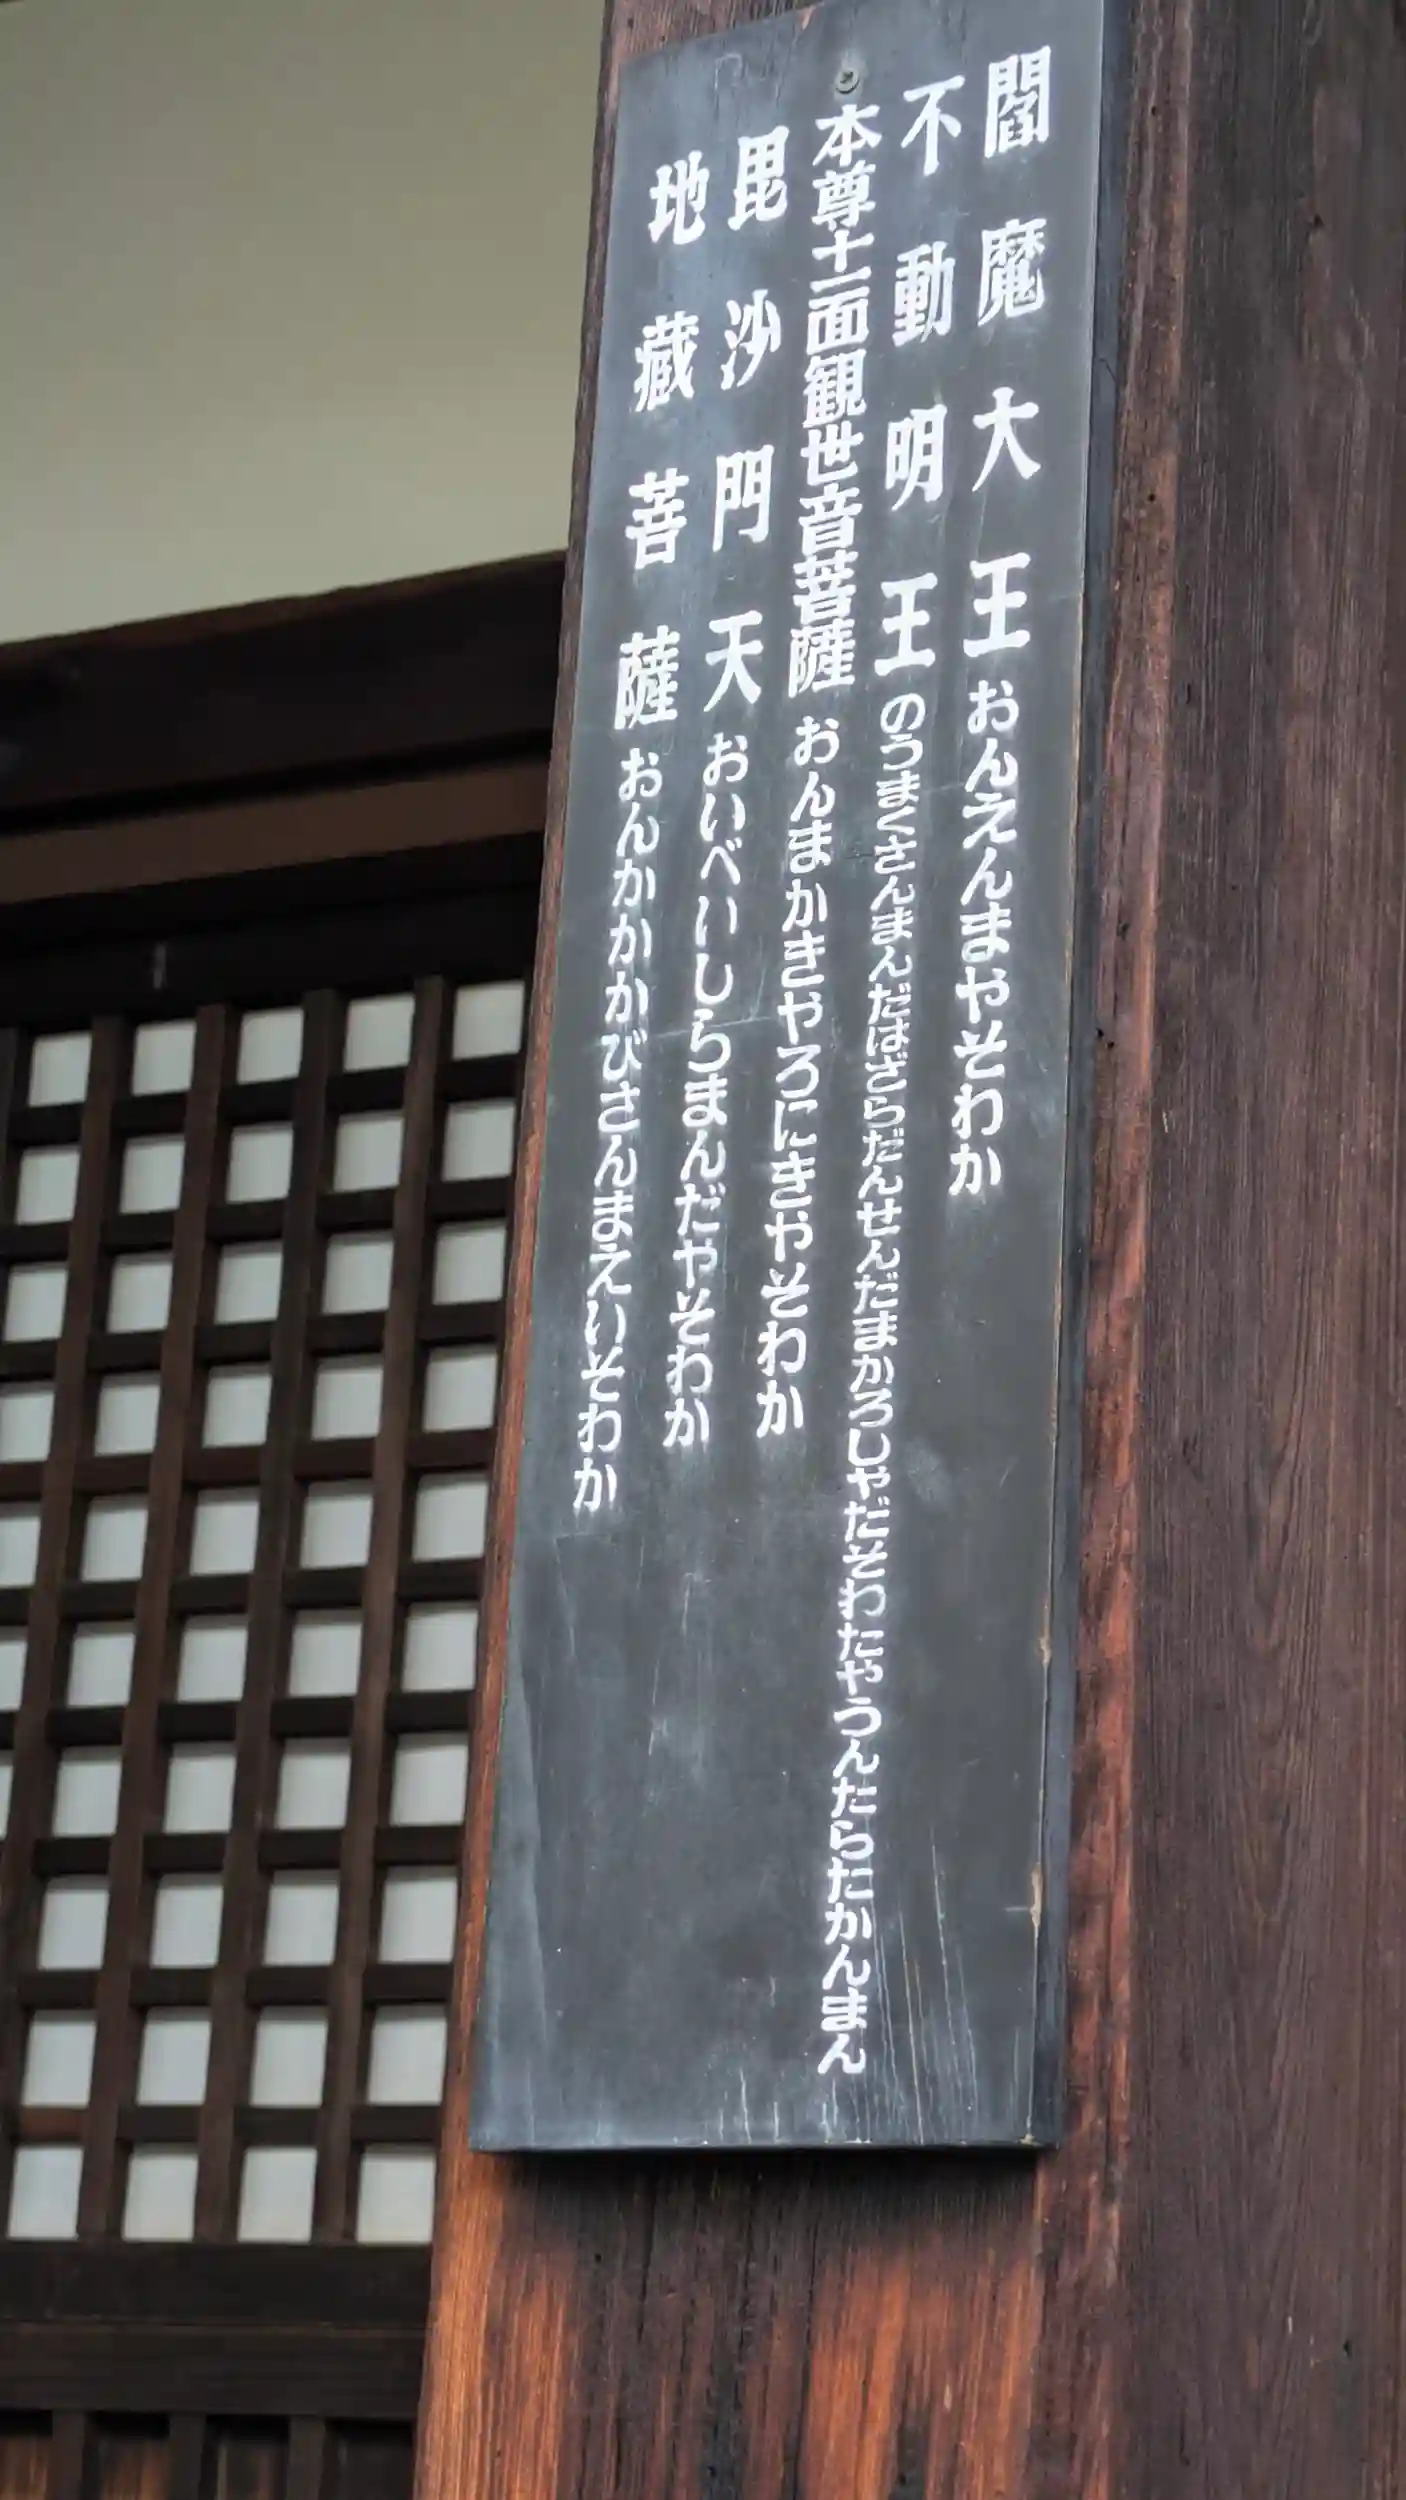 閻魔大王おんえんまやそわか
不動明王のうまくさんまんだばざらだんせんだまかろしゃだそわたやうんたらたかんまん
本尊十一面観世音菩薩おんまかきやろにきやそわか
毘沙門天おいべいしらまんだやそわか
地蔵菩薩おんかかかびさんまえいそわか